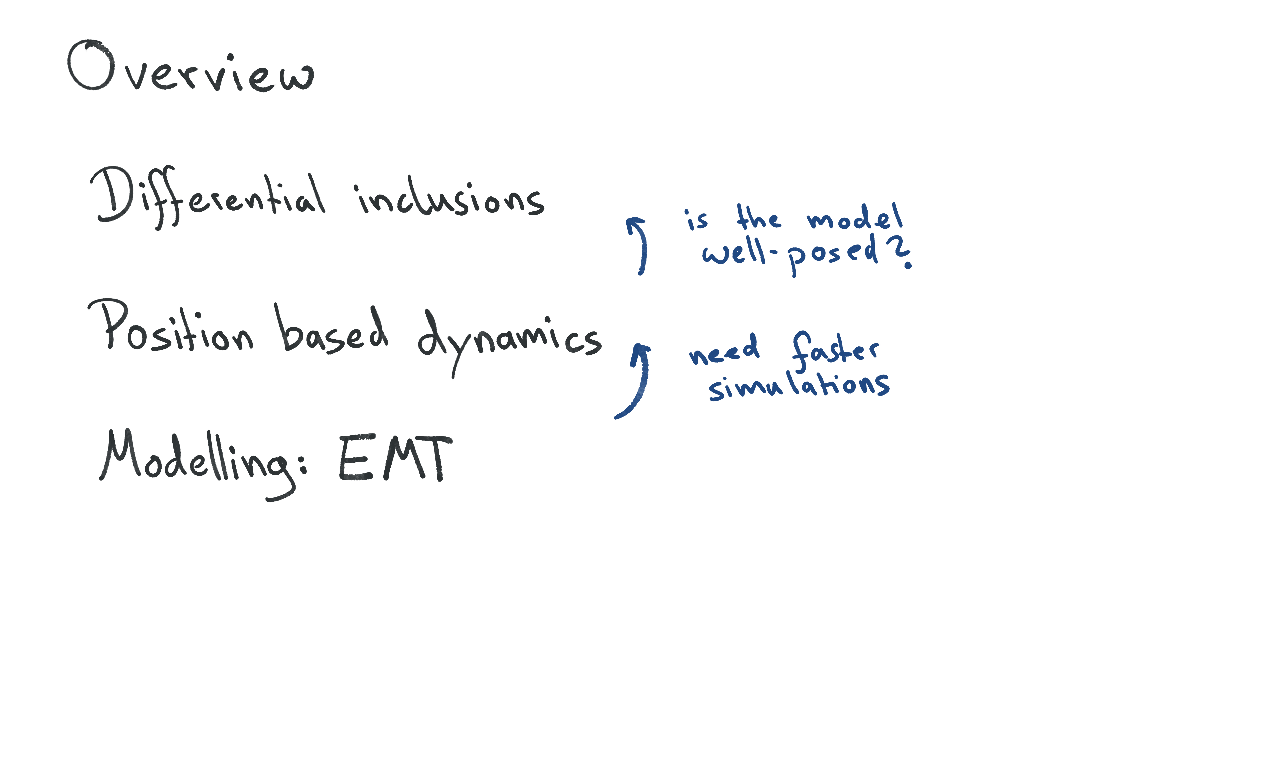 Overview
Differential inclusions
is the model
well-posed?
Position based dynamics
need faster
simulations
Modelling: EMT